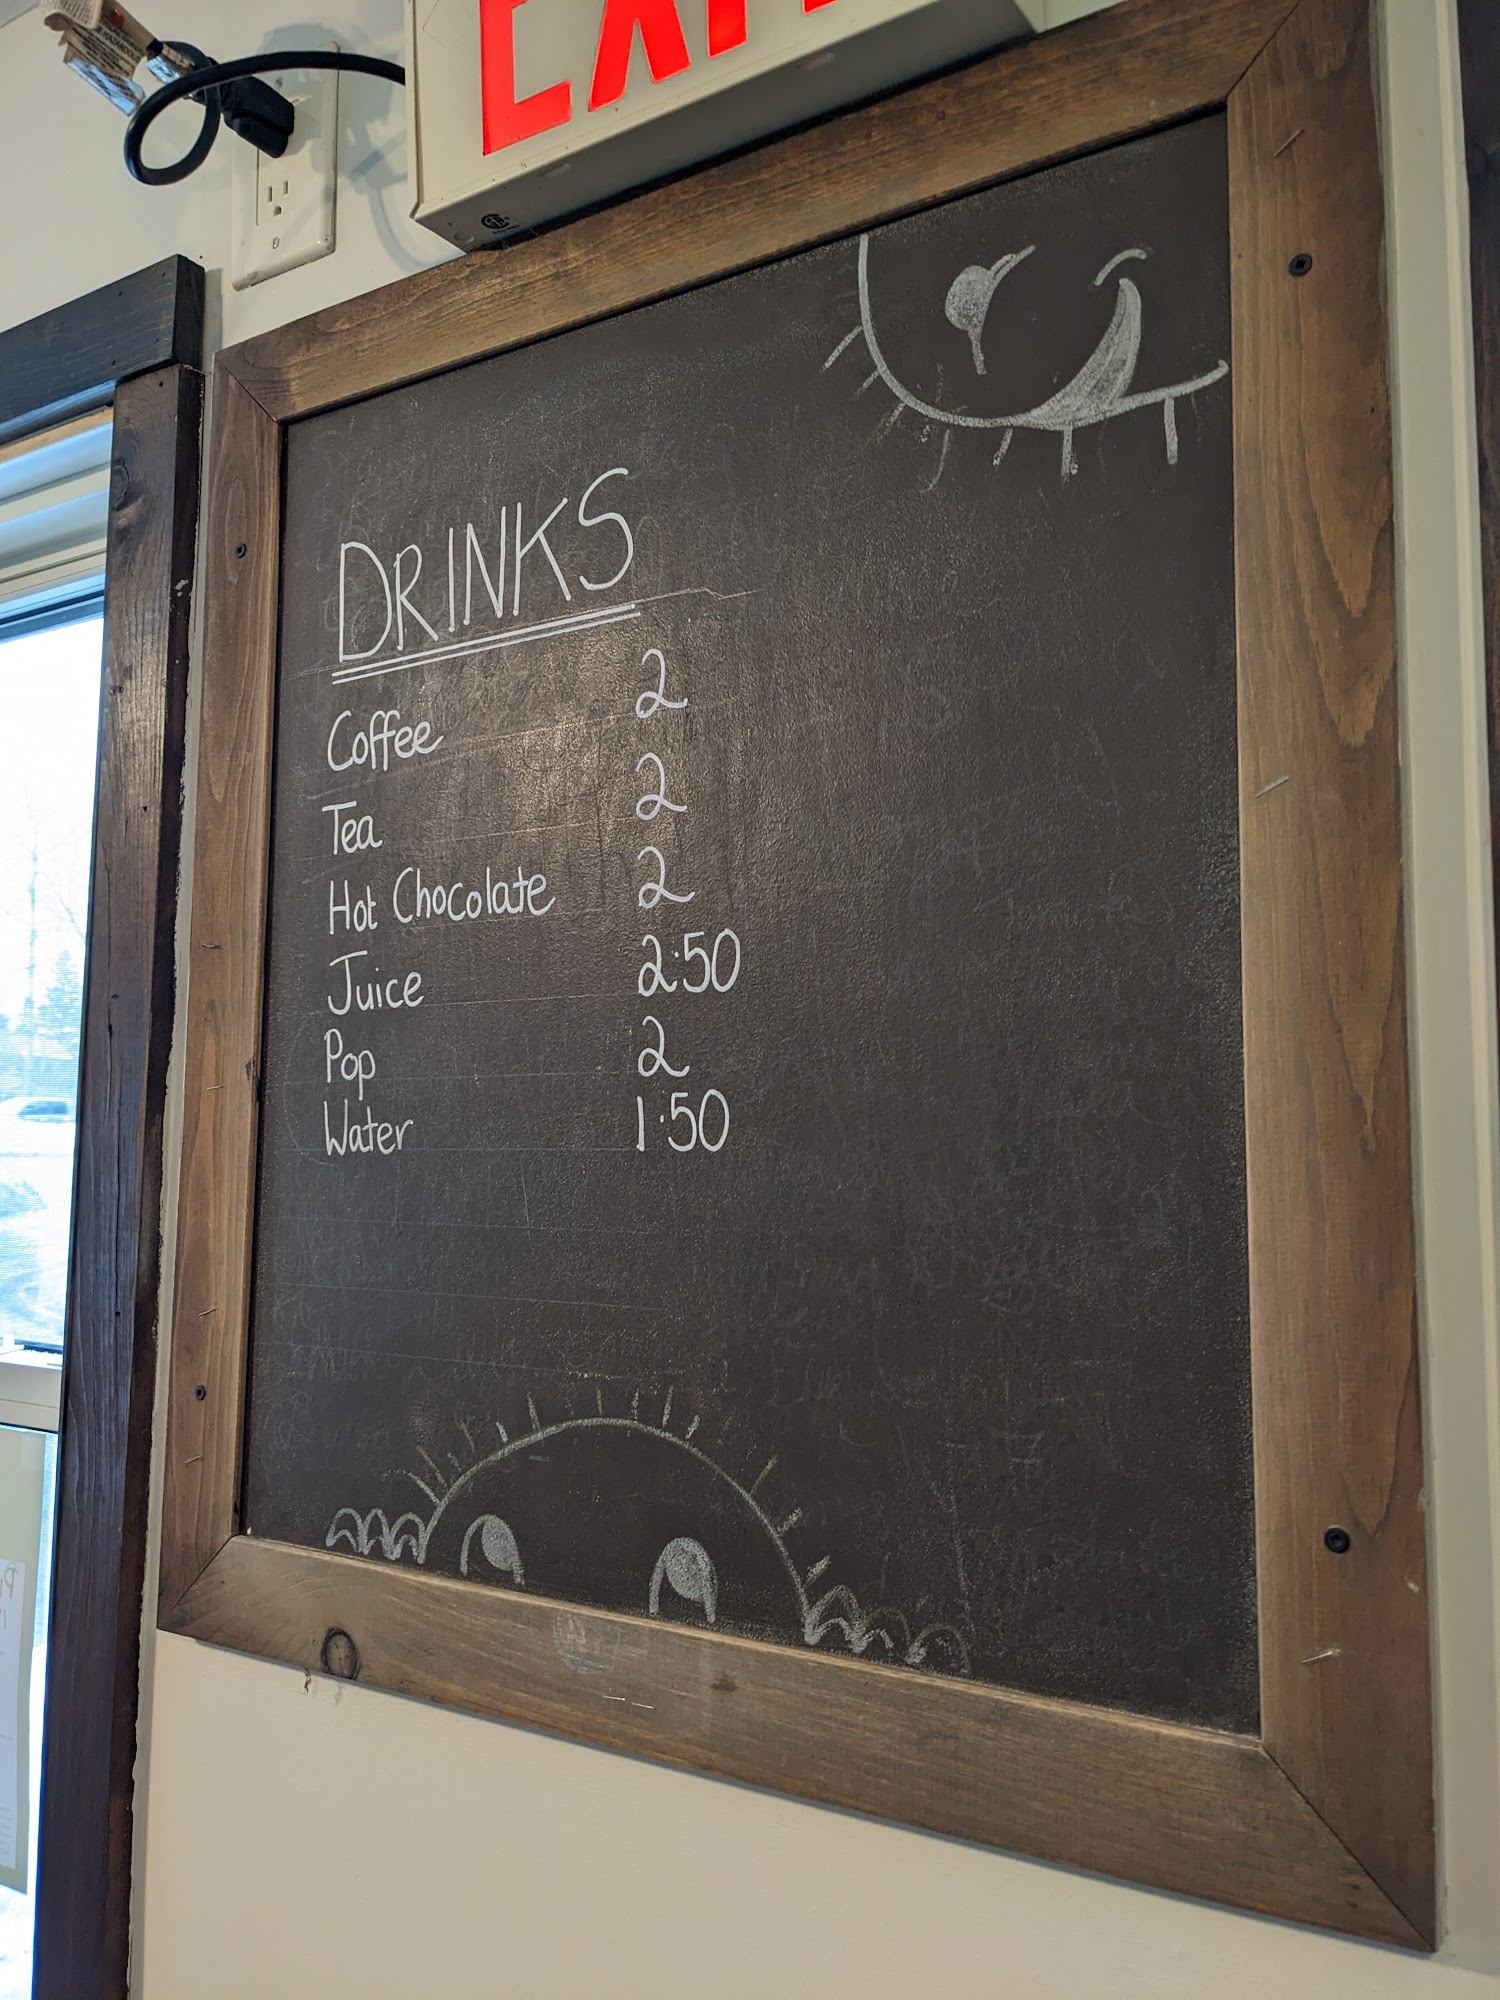 EXI
DRINKS
Coffee 2
Tea 2
Hot Chocolate 2
Juice 2:50
Pop 2
Water 1:50